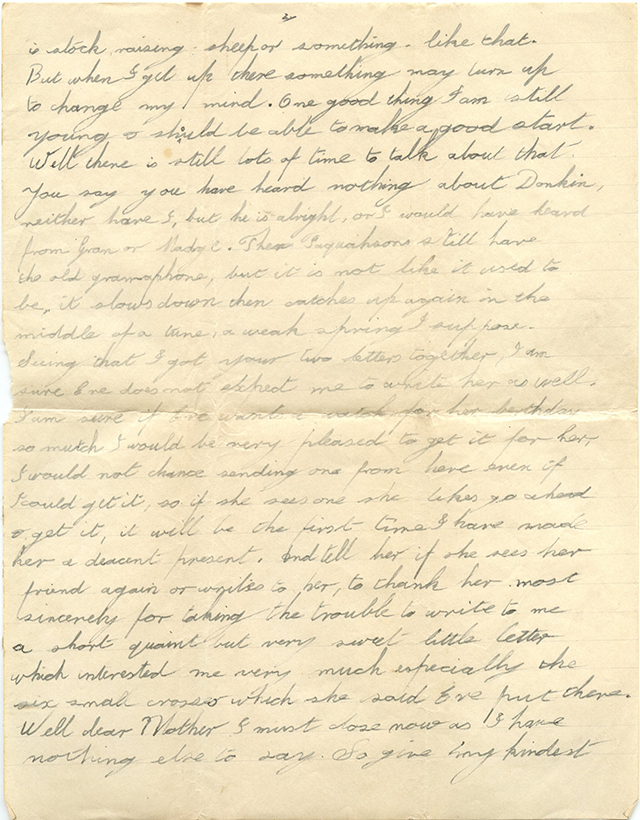 2
is stock, raising sheep or something. like that.
But when I get up there something may turn up
to change my mind. One good thing I am still
young & should be able to make a good start.
Well there is still lots of time to talk about that.
You say you have heard nothing about Donkin,
neither have I, but he is alright, or I would have heard
from Gran or Madge. The still have
the old gramaphone, but it is not like it used to
be, it slows down then catches up again in the
middle of a tune, a weak spring I suppose.
Seeing that I got your two letters together I am
sure Eve does not expect me to write her as well.
I am sure if Eve wants a watch for her birthday
so mutch I would be very pleased to get it for her,
I would not chance sending one from here even if
I could get it, so if she sees one she likes go ahead
& get it, it will be the first time I have made
her a deacent present. And tell her if she sees her
friend again or writes to her, to thank her most
sincerely for taking the trouble to write to me
a short quaint but very sweet little letter
which interested me very much especially the
six small crosses which she said Eve put there.
Well dear Mother I must close now as I have
nothing else to say. So give my kindest